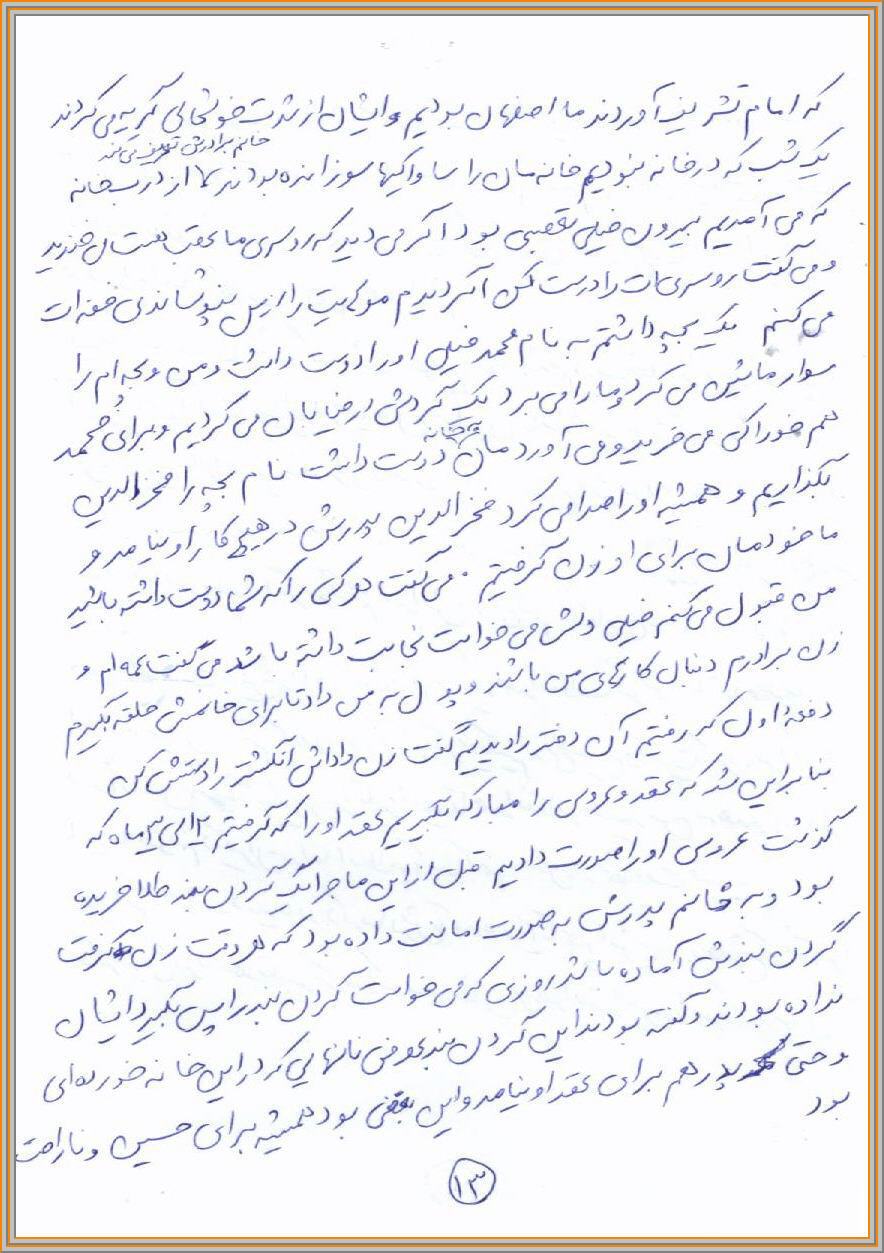 که امام تشریف آوردند ما اصفهان بودیم و ایشان از شدت خوشحالی گریه می کردند
خانم برادرش تعریف می کند
یک شب که در خانه نبودیم خانه مان را ساواکیها سوزانده بودند ما از درب خانه
که می آمدیم بیرون خیلی تعصبی بود اگر می دید که روسری ما عقب است می خندید
و می گفت روسری ات را درست کن اگر دیدم موهایت را از زیر بپوشاندی خفه ات
می کنم یک بچه داشتم به نام محمد خیلی او را دوست داشت و من و بچه ام را
سوار ماشین می کرد و ما را می برد یک گردش در خیابان می کردیم و برای محمد
هم خوراکی می خرید و می آورد دوست داشت نام بچه را فخرالدین
بگذاریم و همیشه او را صدا می کرد فخرالدین پدرش در هیچ کار او نیامد و
ما خودمان برای او زن گرفتیم . می گفت هر کی را که شما دوست داشته باشید
من قبول می کنم خیلی دلش می خواست نجابت داشته باشد می گفت عمه ام و
زن برادرم دنبال کارهای من باشند و پول به من داد تا برای خانمش حلقه بگیرم
دفعه اول که رفتیم آن دختر را دیدیم گفت زن داداش انگشتر را دستش کن
بنابراین شد که عقد و عروسی را مبارکه بگیریم عقد او را که گرفتیم ۲ الی ۳ ماه که
گذشت عروسی او را صورت دادیم قبل از این ماجرا یک گردن بند طلا خریده
بود و به خانم پدرش به صورت امانت داده بود که هر وقت زن گرفت
گردن بندش آماده باشد روزی که می خواست گردن بند را پس بگیرد ایشان
نداده بودند و گفته بودند این گردن بند عوض نانهایی که در این خانه خورده ای
و حتی پدر هم برای عقد او نیامد و این بغضی بود همیشه برای حسین و ناراحت
بود
۱۳